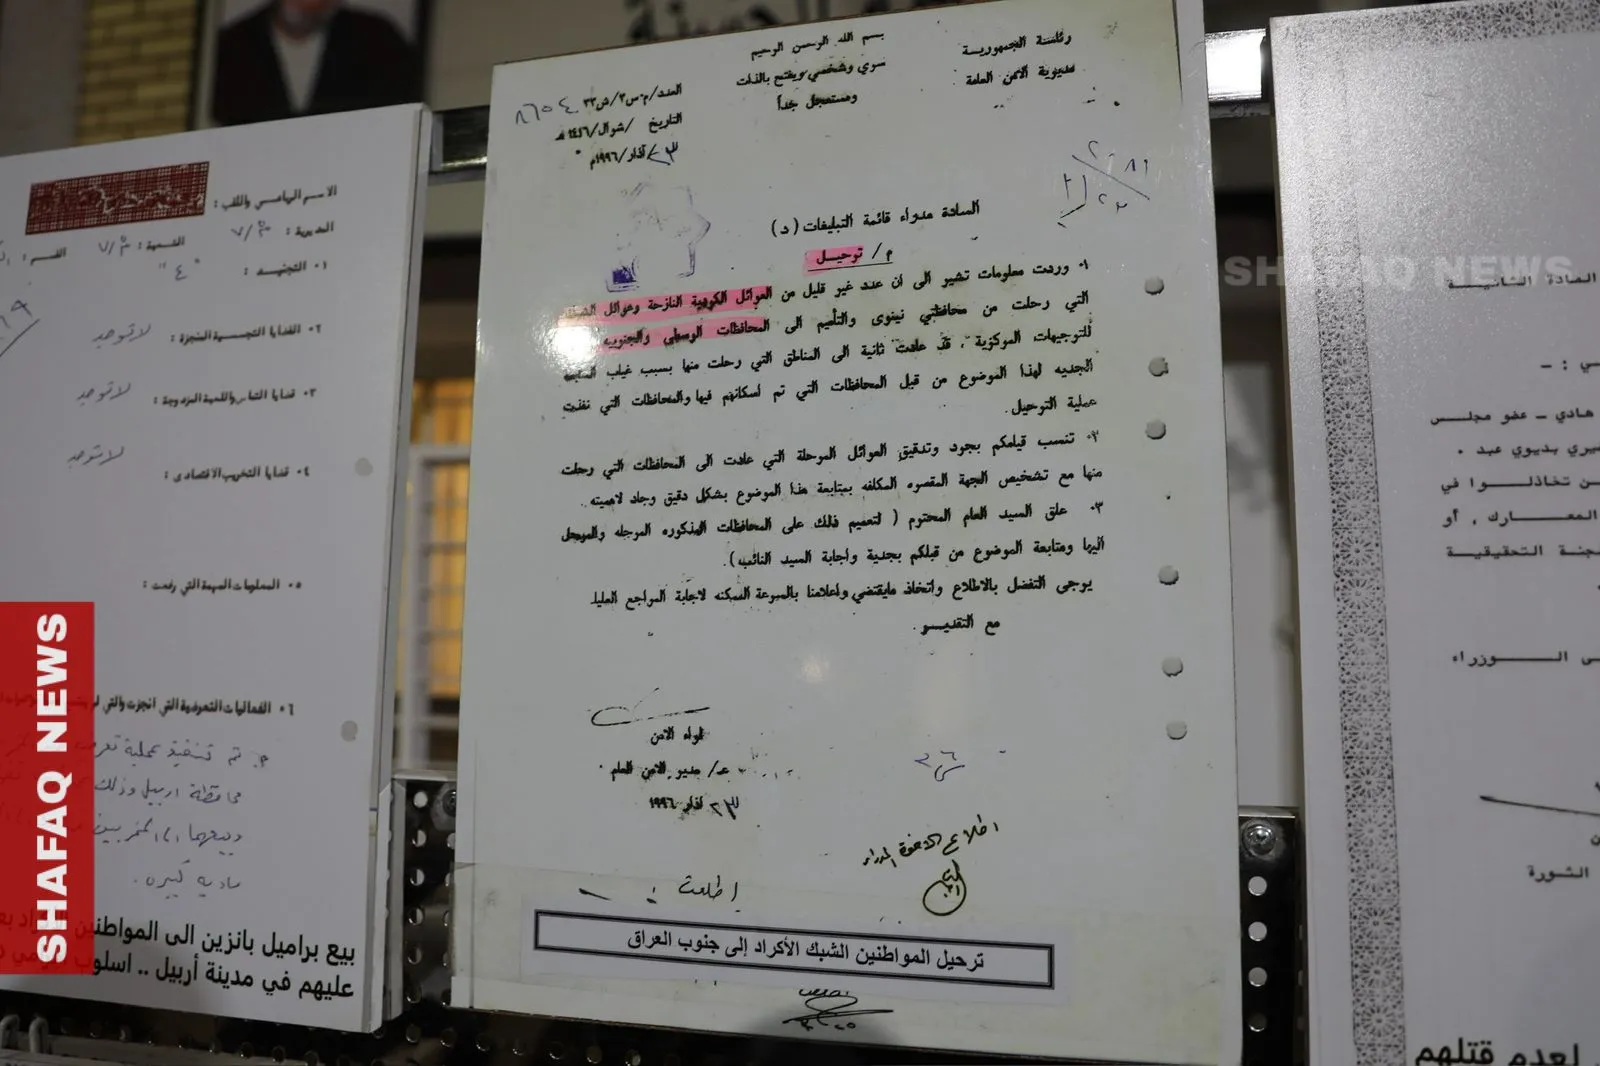 رئاسة الجمهورية
مديرية الامن العامة
بسم الله الرحمن الرحيم
سري وشخصي ويفتح بالذات
ومستعجل جداً
العدد/م.س٣/ش٣٣ ٨٦٥٠٤
التاريخ /شوال/١٤١٦هـ
٢٣/اذار/١٩٩٦م
السادة مدراء قائمة التبليغات (د)
م/ ترحيل
١٠ وردت معلومات تشير الى ان عدد غير قليل من العوائل الكردية النازحة وعوائل
التي رحلت من محافظتي نينوى والتأميم الى المحافظات الوسطى والجنوبيه
للتوجيهات المركزية ، قد عادت ثانية الى المناطق التي رحلت منها بسبب غياب
الجديه لهذا الموضوع من قبل المحافظات التي تم اسكانهم فيها والمحافظات التي نفذت
عملية الترحيل.
٢٠ تنسب قيامكم بجرد وتدقيق العوائل المرحلة التي عادت الى المحافظات التي رحلت
منها مع تشخيص الجهة المقصره المكلفه بمتابعة هذا الموضوع بشكل دقيق وجاد لاهميته.
٣٠ علق السيد العام المحترم ( لتعميم ذلك على المحافظات المذكوره المرحله والمرحل
اليها ومتابعة الموضوع من قبلكم بجدية واجابة السيد النائب).
يرجى التفضل بالاطلاع واتخاذ مايقتضي واعلامنا بالسرعة الممكنه لاجابة المراجع العليا
مع التقديـر.
لواء الامن
عـ/ مدير الامن العام
٢٣ اذار ١٩٩٦
اطلاع الاخوة المدراء
اطلعت
ترحيل المواطنين الشبك الأكراد إلى جنوب العراق
الاسم الرباعي واللقب :
المديرية :
الشعبة :
القسم :
١٠ التجنيد : "٤"
٢٠ القضايا التجسسية المنجزة : لا توجد
٣٠ قضايا التآمر واللعبة المزدوجة : لا توجد
٤٠ قضايا التخريب الاقتصادى : لا توجد
٥٠ المعلومات المهمة التي رفعت :
٦٠ الفعاليات التعرضية التي انجزت والتي
تم تنفيذ عملية
محافظة اربيل وذلك
وبيعها الى المخربين
مادية كبيرة.
بيع براميل بانزين الى المواطنين
عليهم في مدينة أربيل .. اسلوب
السادة
هادي - عضو مجلس
بديوي عبد .
تخاذلوا في
المعارك , أو
التحقيقية
الـوزراء
الثورة
لعدم قتلهم
SHAFAQ NEWS
SHAFAQ NEWS